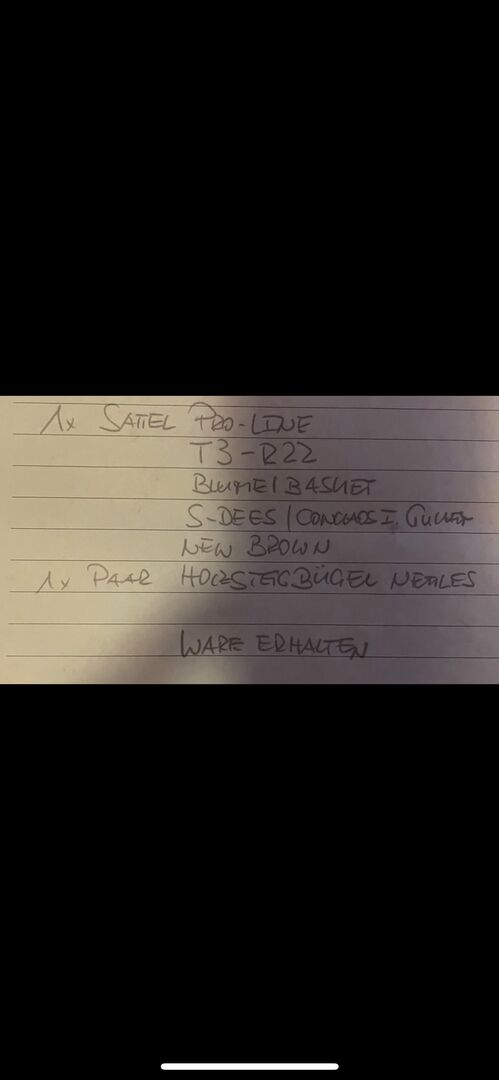 1x SATTEL PRO-LINE
T3-R22
BLUME/BASKET
S-DEES/CONCHOS I. GULLET
NEW BROWN
1x PAAR HOLZSTEIGBÜGEL NETTLES
WARE ERHALTEN